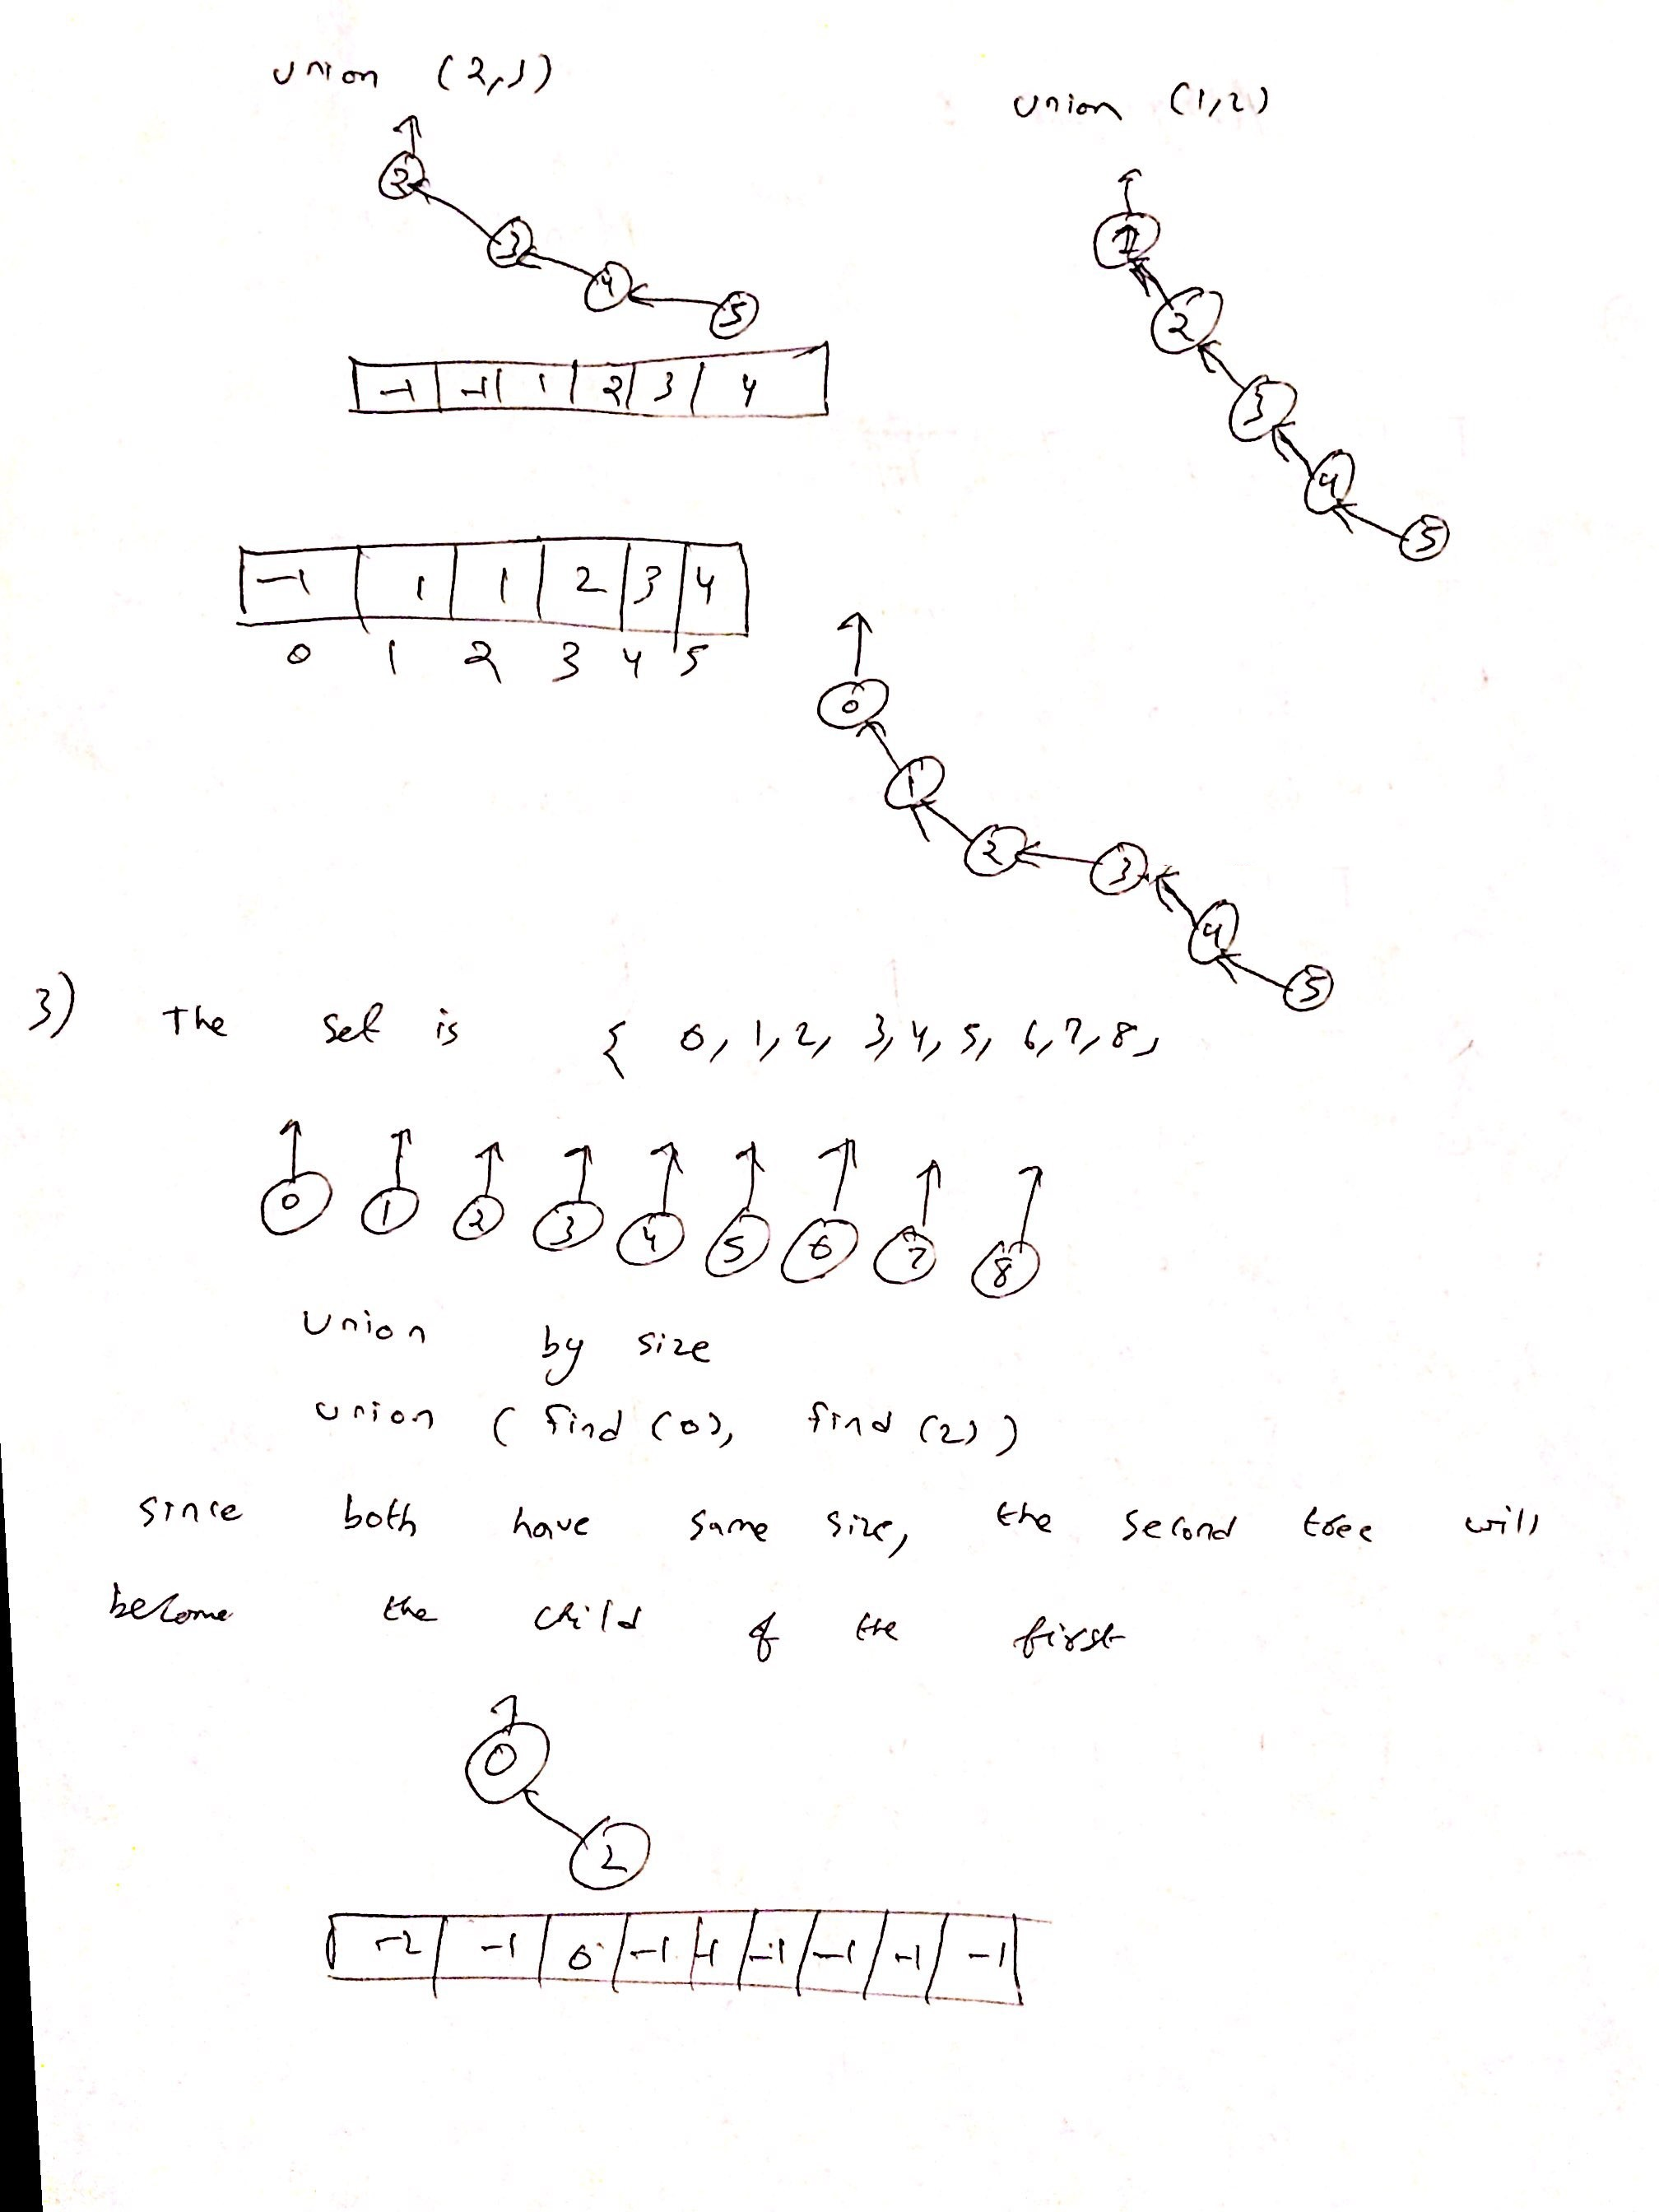 union (2,3)
union (1,2)
2
1
3
2
4
5
3
-1 -1 1 2 3 4
4
5
-1 1 1 2 3 4
0 1 2 3 4 5
0
1
2 3
4
5
3) The set is { 0, 1, 2, 3, 4, 5, 6, 7, 8,
0 1 2 3 4 5 6 7 8
Union by size
union ( find (0), find (2))
since both have same size, the second tree will
become the child of the first
0
2
-2 -1 0 -1 -1 -1 -1 -1 -1